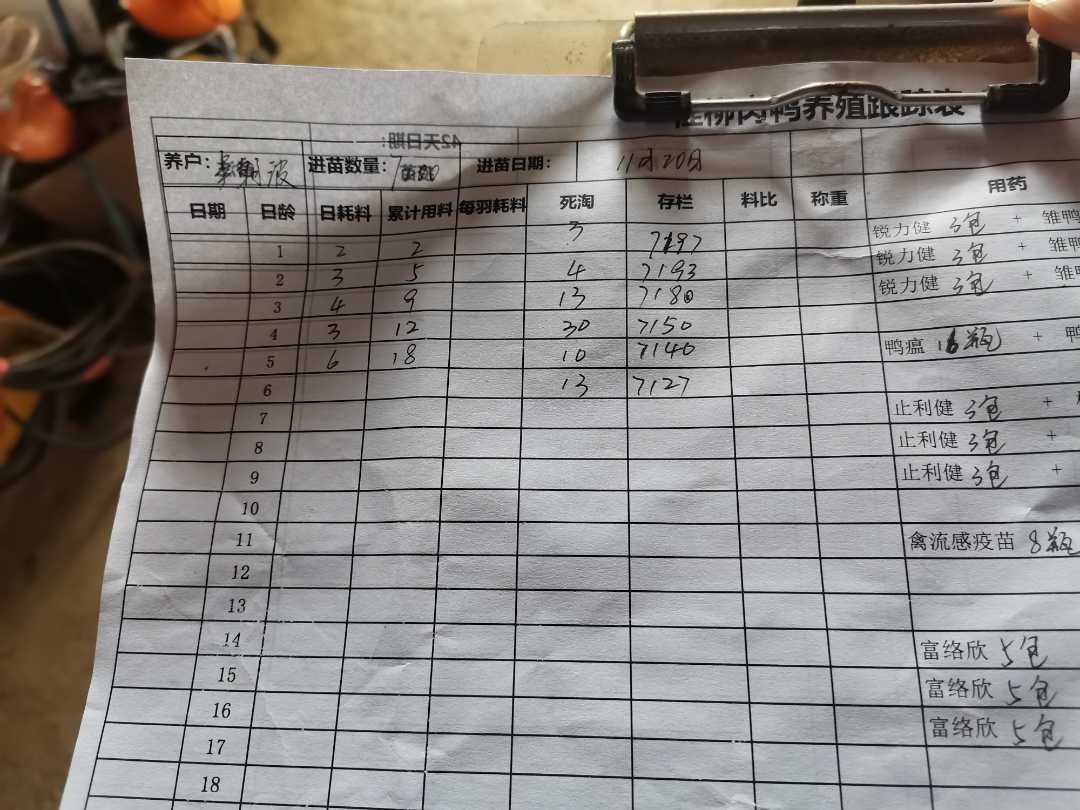 桂柳肉鸭养殖跟踪表
42天日期：
养户： 进苗数量： 进苗日期： 11月20日
日期 日龄 日耗料 累计用料 每羽耗料 死淘 存栏 料比 称重 用药
1 2 2 3 7197 锐力健 3包 + 雏鸭
2 3 5 4 7193 锐力健 3包 + 雏鸭
3 4 9 13 7180 锐力健 3包 + 雏鸭
4 3 12 30 7150
5 6 18 10 7140 鸭瘟 瓶 + 鸭
6 13 7127
7 止利健 3包 +
8 止利健 3包 +
9 止利健 3包 +
10
11 禽流感疫苗 8瓶
12
13
14 富络欣 5包
15 富络欣 5包
16 富络欣 5包
17
18